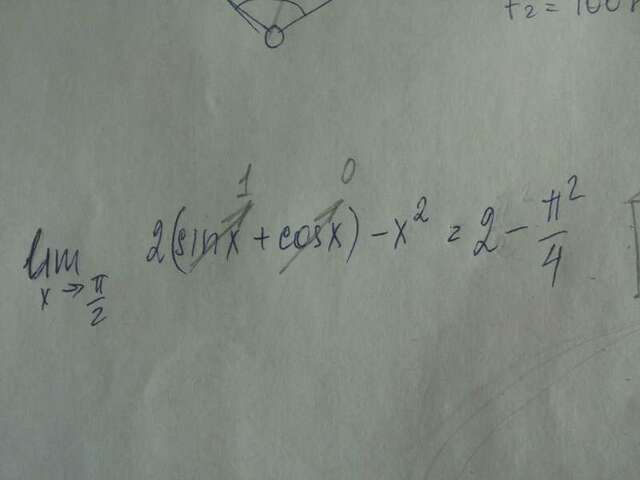 F₂ = 100
lim x→π/2 2(sinx + cosx) - x² = 2 - π²/4
1 0